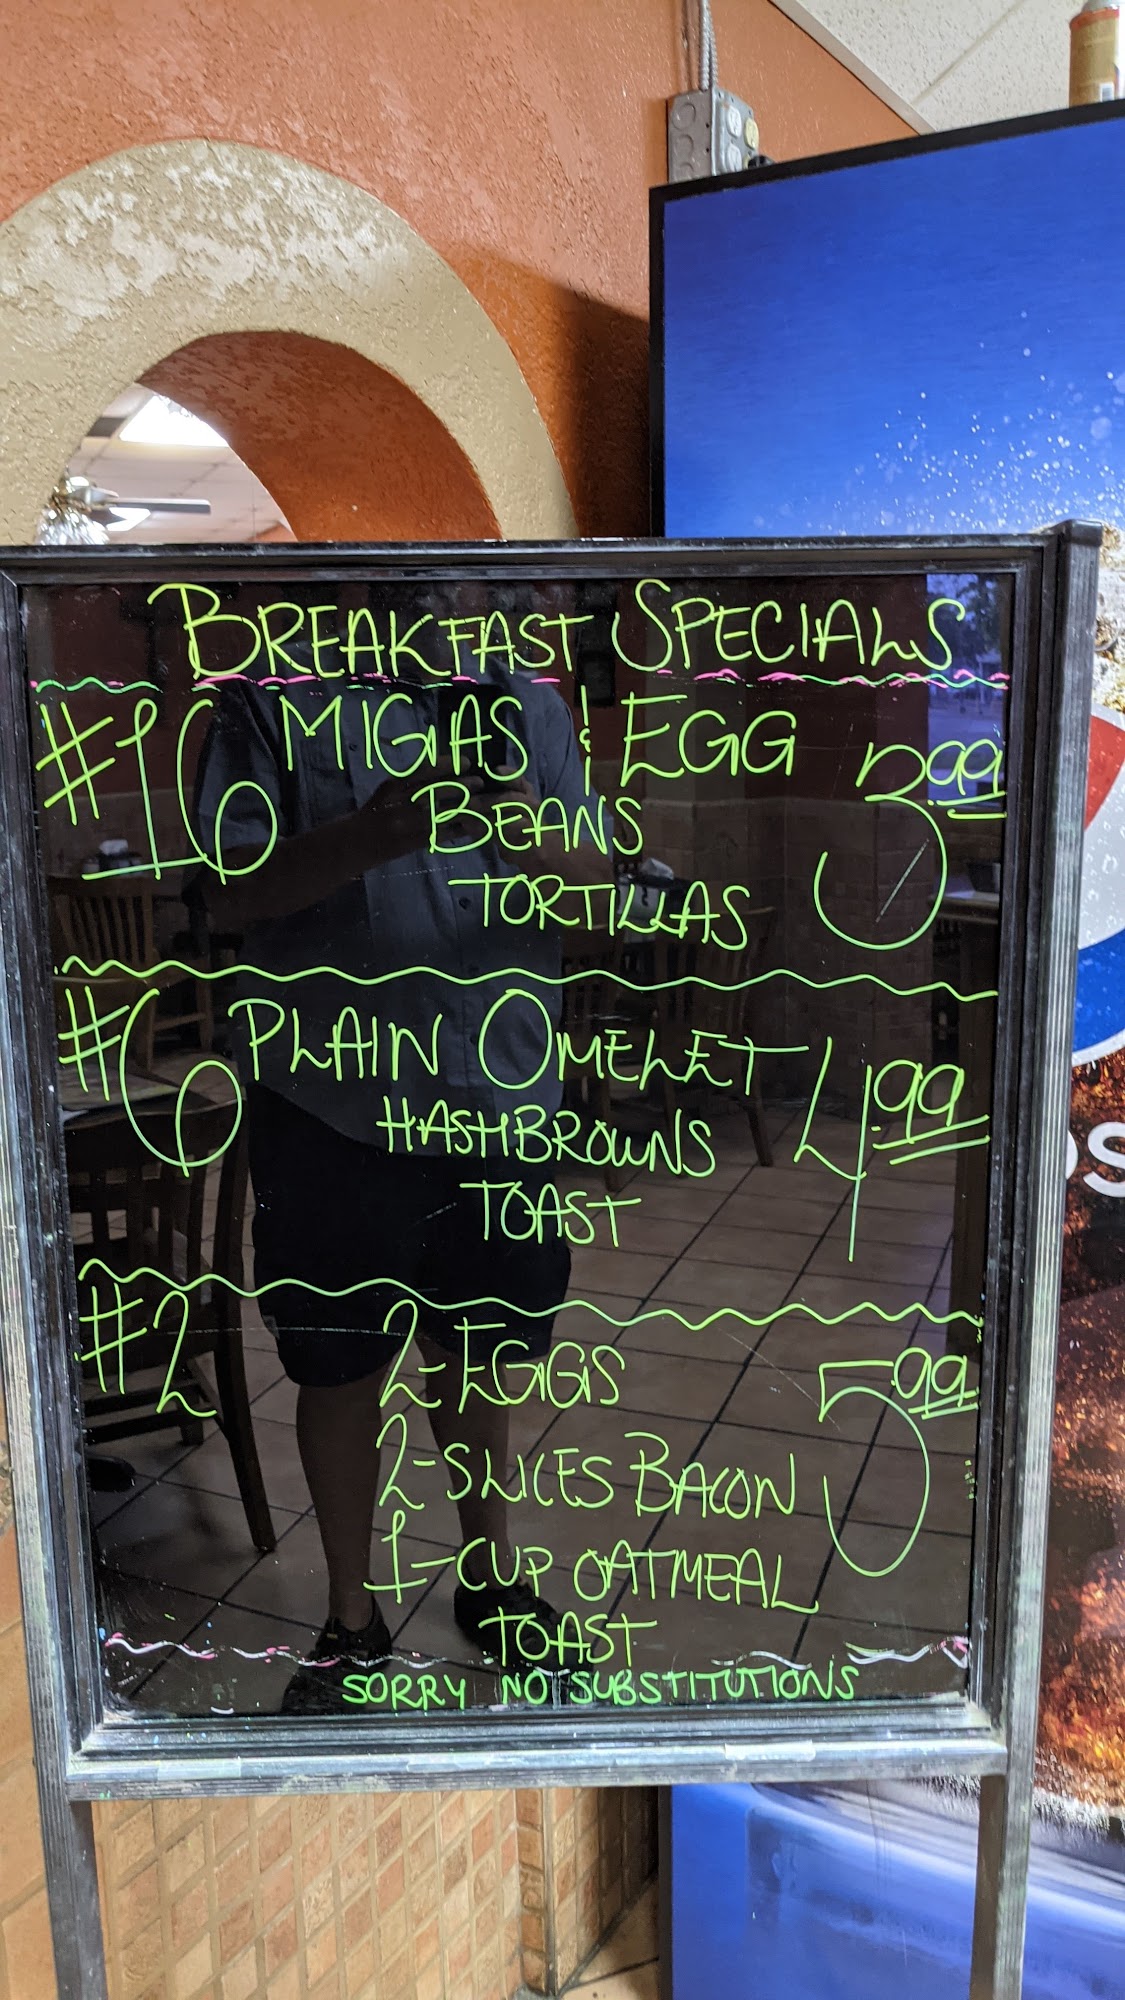 BREAKFAST SPECIALS
#16 MIGAS & EGG 3.99
BEANS
TORTILLAS
#6 PLAIN OMELET 4.99
HASHBROWNS
TOAST
#2 2-EGGS 5.99
2-SLICES BACON
1-CUP OATMEAL
TOAST
SORRY NO SUBSTITUTIONS